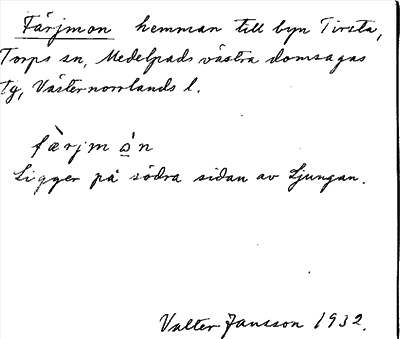 Färjmon hemman till byn Tirsta,
Torps sn, Medelpads västra domsagas
tg, Västernorrlands l.
fæ̀rjmo̲n
Ligger på södra sidan av Ljungan.
Valter Jansson 1932.